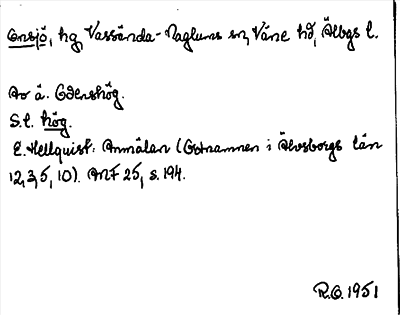 Onsjö, hg, Vassända-Naglums sn, Väne hd, Älvbgs l.
Av ä. Odenshög.
S.l. hög.
E. Hellquist: Anmälan (Ortnamnen i Älvsborgs län
12,3,5,10). ANF 25, s. 194.
R.O. 1951